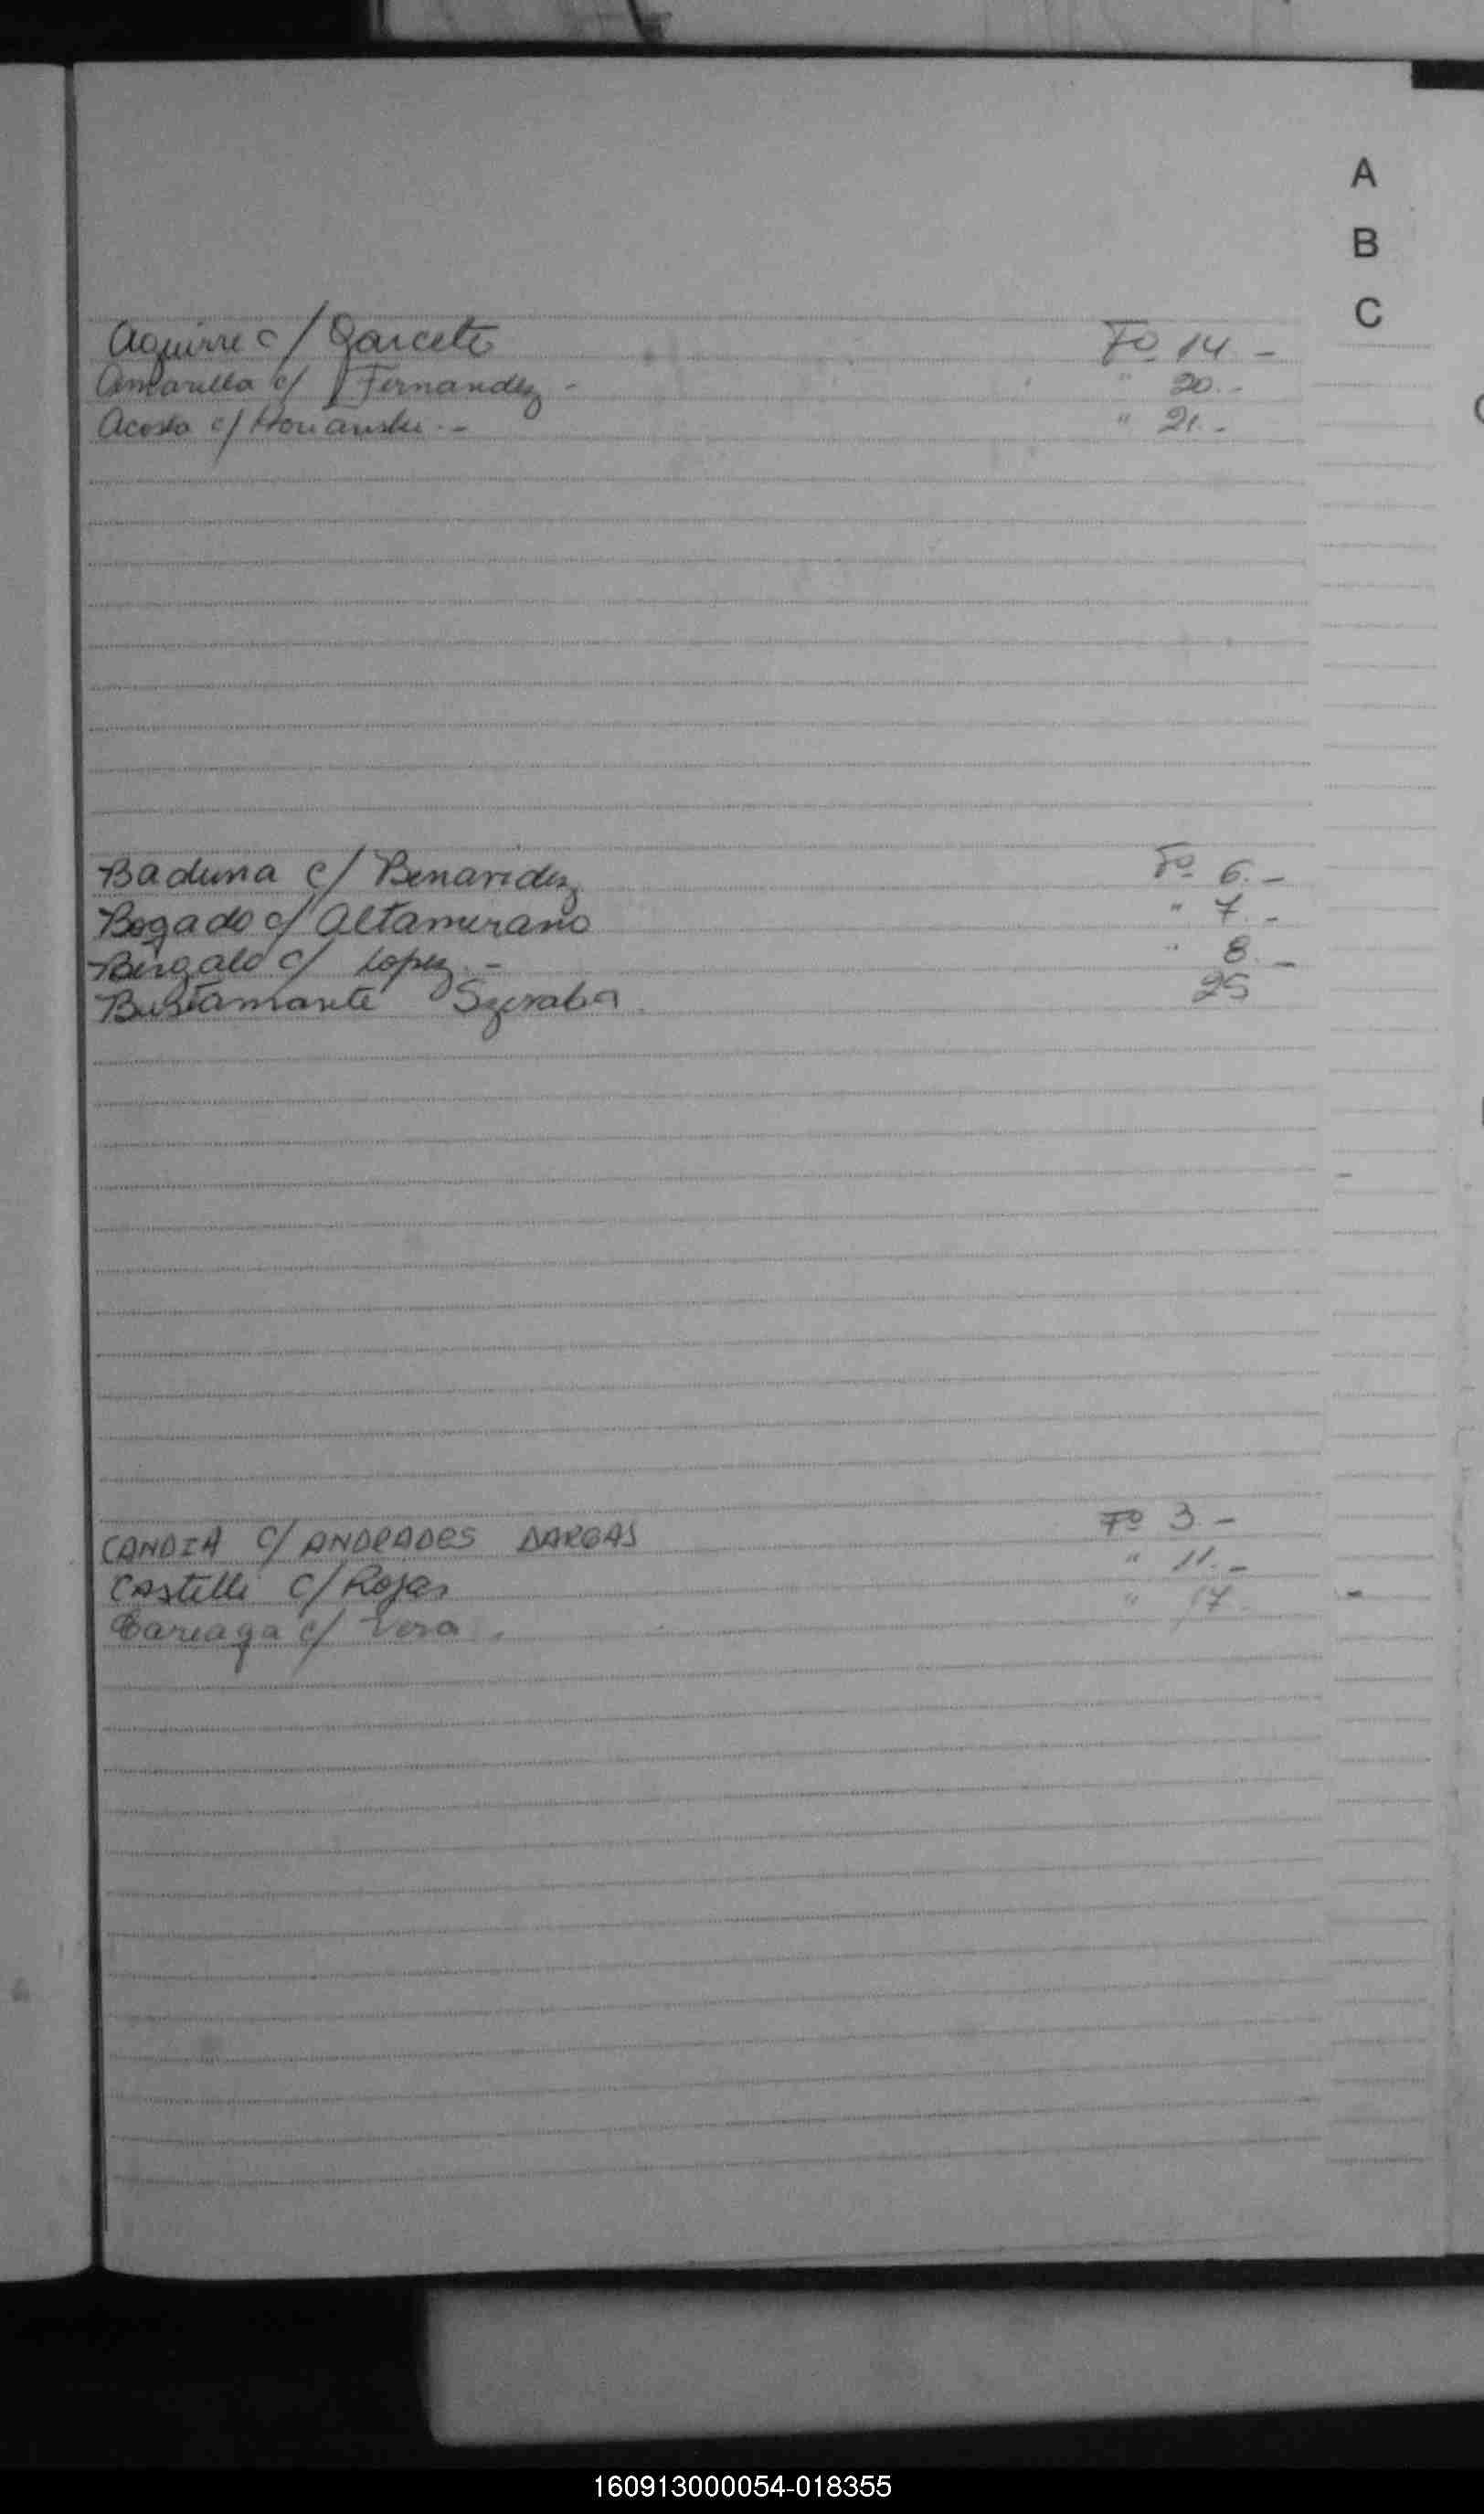 A
B
C
Aguirre c/ Garcete Fº 14.-
Amarilla c/ Fernandez - " 20.-
Acosta c/ .- " 21.-
Baduna c/ Benavidez Fº 6.-
Bogado c/ Altamirano " 7.-
Bergalo c/ Lopez.- " 8.-
Bustamante Szeraba 25
CANDIA c/ ANDRADES DARGAS Fº 3.-
Castelli c/ Rojas " 11.-
Careaga c/ Vera. " 17.
160913000054-018355